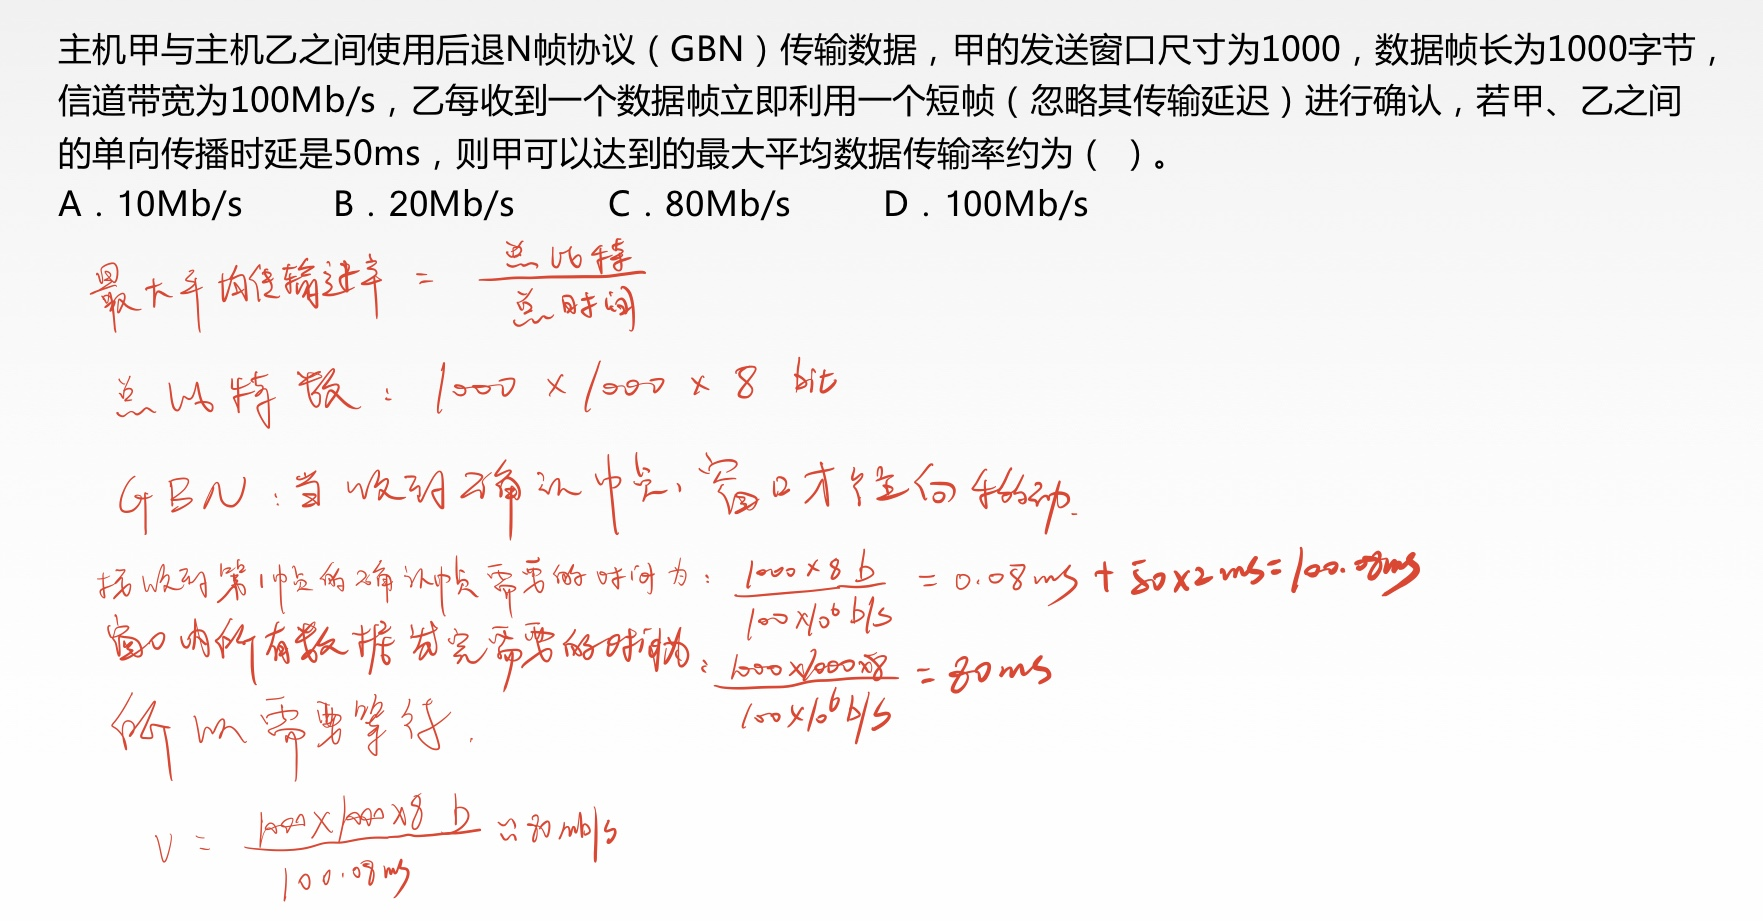 主机甲与主机乙之间使用后退N帧协议（GBN）传输数据，甲的发送窗口尺寸为1000，数据帧长为1000字节，
信道带宽为100Mb/s，乙每收到一个数据帧立即利用一个短帧（忽略其传输延迟）进行确认，若甲、乙之间
的单向传播时延是50ms，则甲可以达到的最大平均数据传输率约为（ ）。
A．10Mb/s B．20Mb/s C．80Mb/s D．100Mb/s
最大平均传输速率 = 总比特 / 总时间
总比特数：1000 × 1000 × 8 bit
GBN：当收到确认帧，窗口才往向移动.
接收到第1帧的确认帧需要的时间为：1000×8 b / 100×10⁶ b/s = 0.08ms + 50×2ms = 100.08ms
窗口内所有数据发完需要的时间为：1000×1000×8 / 100×10⁶ b/s = 80ms
所以需要等待.
V = 1000×1000×8 b / 100.08ms ≈ 80mb/s